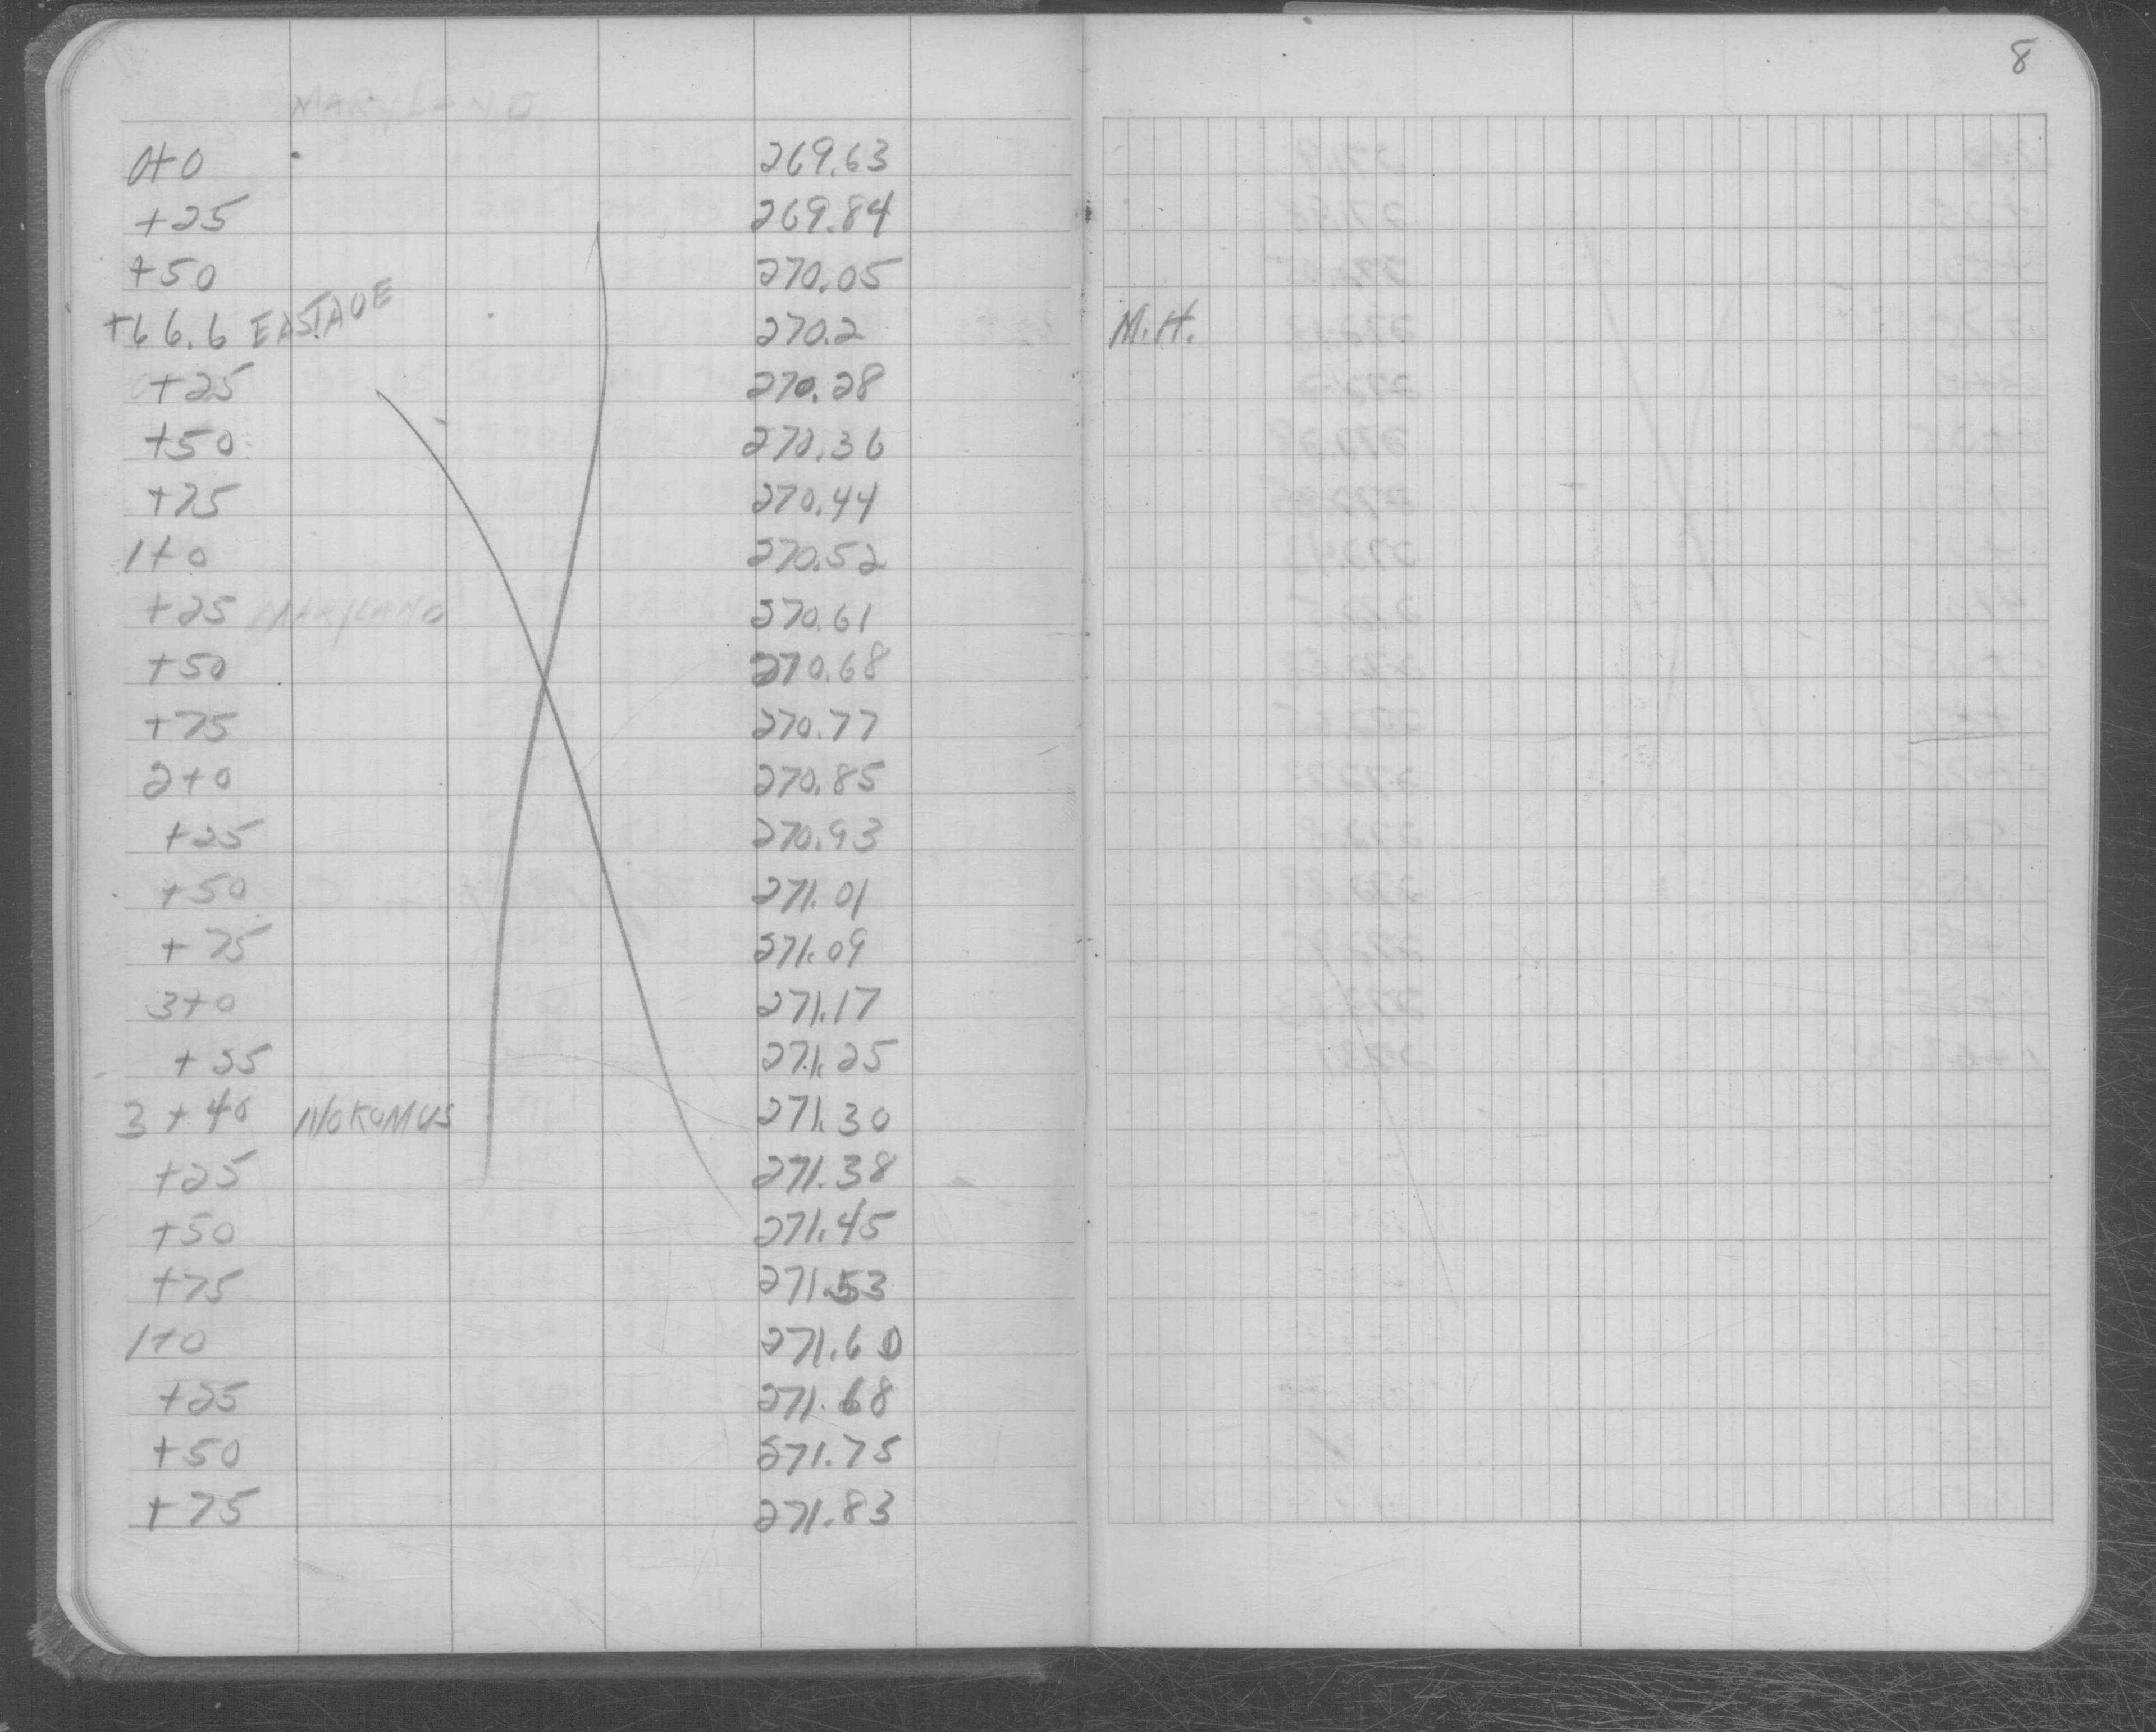 8
MARYLAND
0+0 269.63
+25 269.84
+50 270.05
+66.6 EAST AVE 270.2 M.H.
+25 270.28
+50 270.36
+75 270.44
1+0 270.52
+25 MARYLAND 270.61
+50 270.68
+75 270.77
2+0 270.85
+25 270.93
+50 271.01
+75 271.09
3+0 271.17
+25 271.25
3+40 NOKOMUS 271.30
+25 271.38
+50 271.45
+75 271.53
1+0 271.60
+25 271.68
+50 271.75
+75 271.83